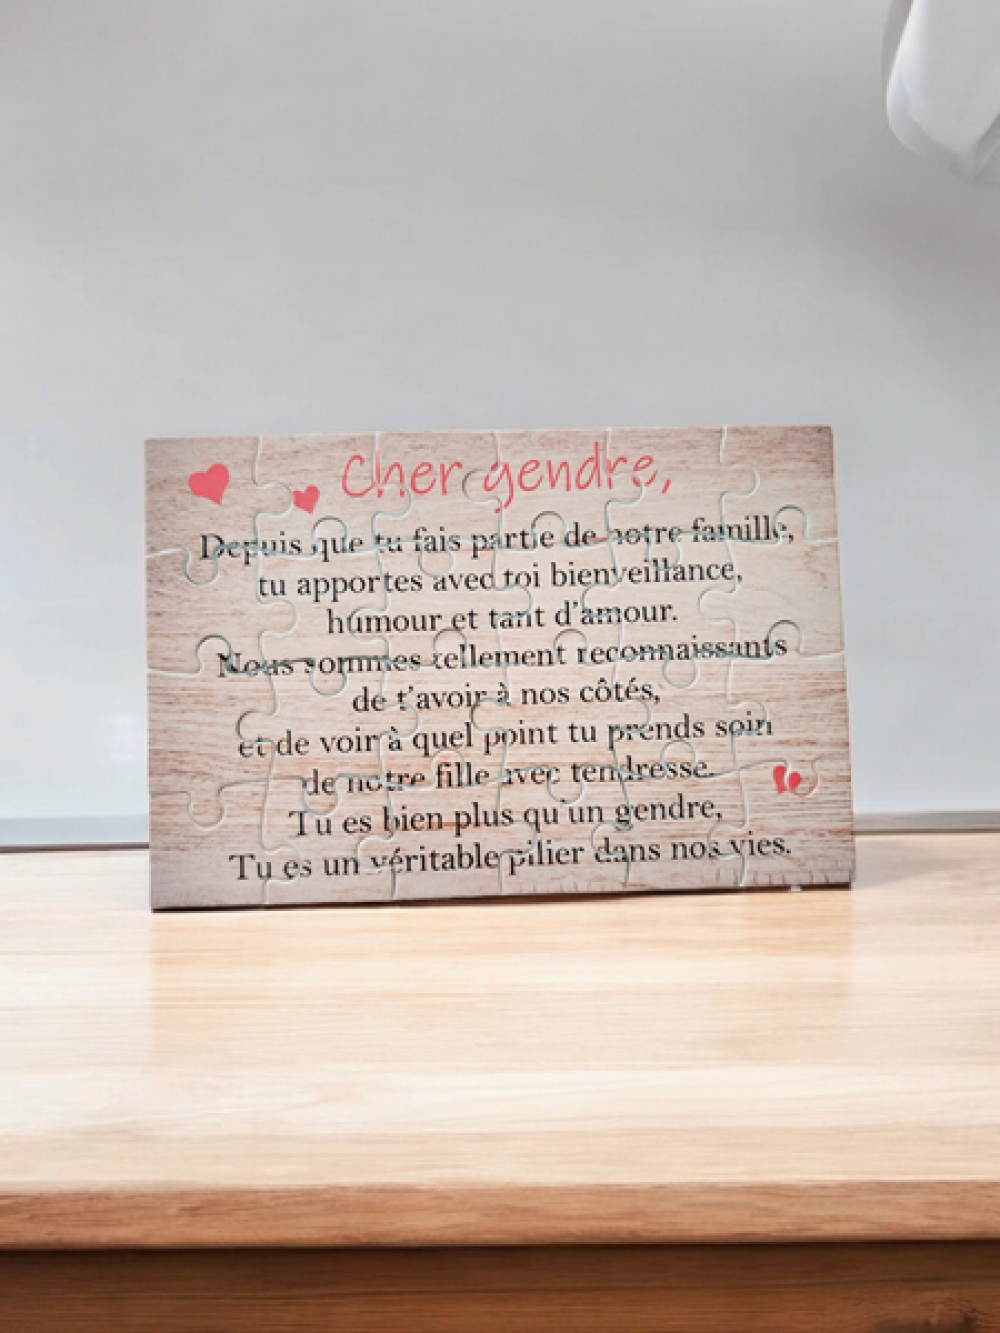 Cher gendre,
Depuis que tu fais partie de notre famille,
tu apportes avec toi bienveillance,
humour et tant d'amour.
Nous sommes tellement reconnaissants
de t'avoir à nos côtés,
et de voir à quel point tu prends soin
de notre fille avec tendresse.
Tu es bien plus qu'un gendre,
Tu es un véritable pilier dans nos vies.